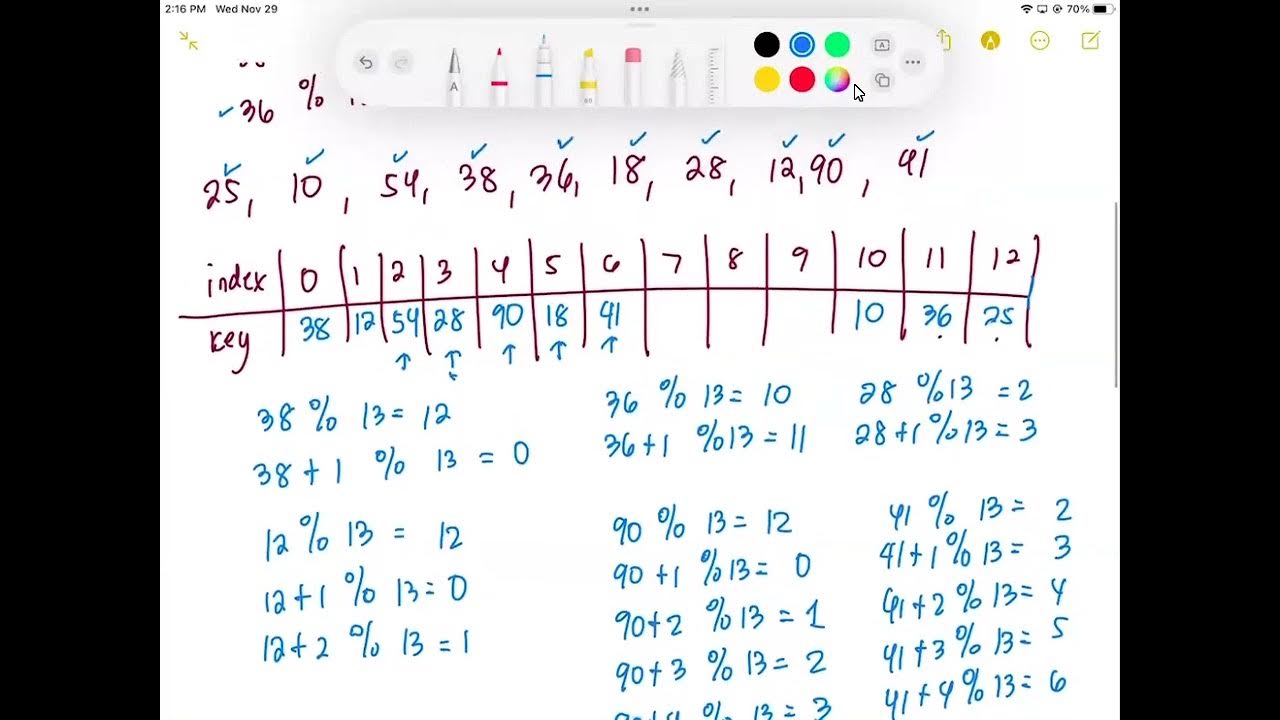 2:16 PM Wed Nov 29
70%
A
36 %
25, 10, 54, 38, 36, 18, 28, 12, 90, 41
index 0 1 2 3 4 5 6 7 8 9 10 11 12
key 38 12 54 28 90 18 41 10 36 25
38 % 13 = 12
38 + 1 % 13 = 0
12 % 13 = 12
12 + 1 % 13 = 0
12 + 2 % 13 = 1
36 % 13 = 10
36 + 1 % 13 = 11
90 % 13 = 12
90 + 1 % 13 = 0
90 + 2 % 13 = 1
90 + 3 % 13 = 2
% 13 = 3
28 % 13 = 2
28 + 1 % 13 = 3
41 % 13 = 2
41 + 1 % 13 = 3
41 + 2 % 13 = 4
41 + 3 % 13 = 5
41 + 4 % 13 = 6